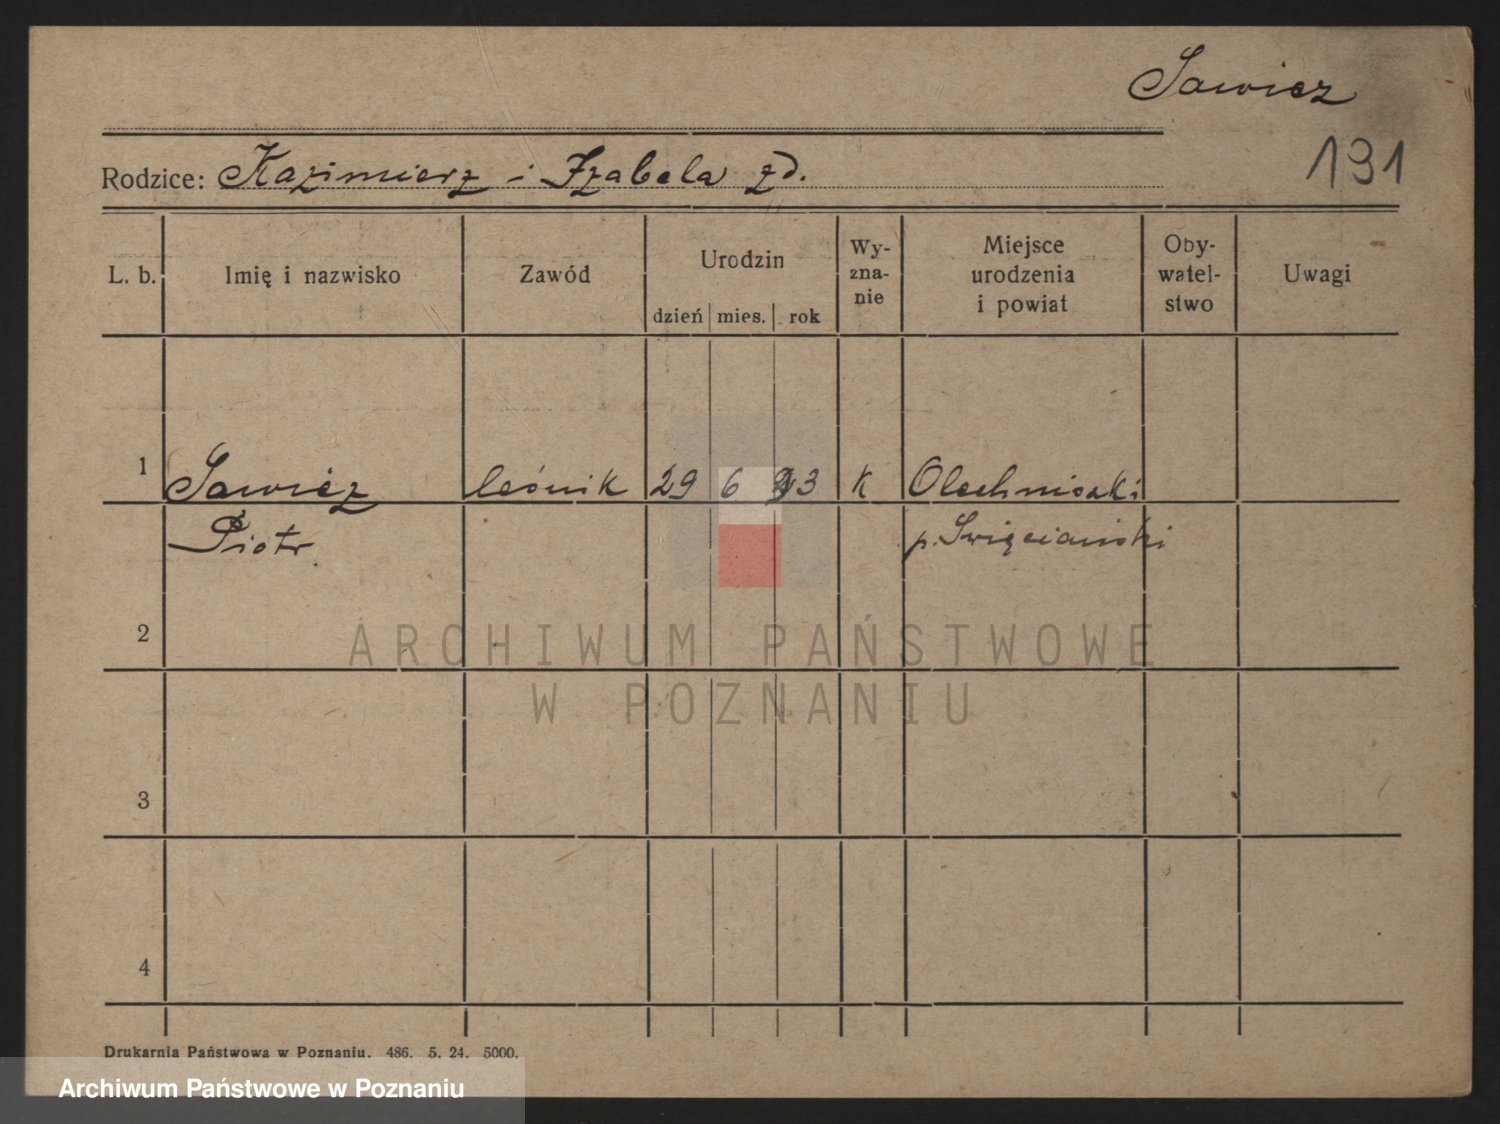 Sawicz
Rodzice: Kazimierz i Izabela zd.
191
L. b.
Imię i nazwisko
Zawód
Urodzin
dzień mies. rok
Wy-
zna-
nie
Miejsce
urodzenia
i powiat
Oby-
watel-
stwo
Uwagi
1 Sawicz leśnik 29 6 K Olechniszki
Piotr p. Święciański
2
ARCHIWUM PAŃSTWOWE
W POZNANIU
3
4
Drukarnia Państwowa w Poznaniu. 486. 5. 24. 5000.
Archiwum Państwowe w Poznaniu